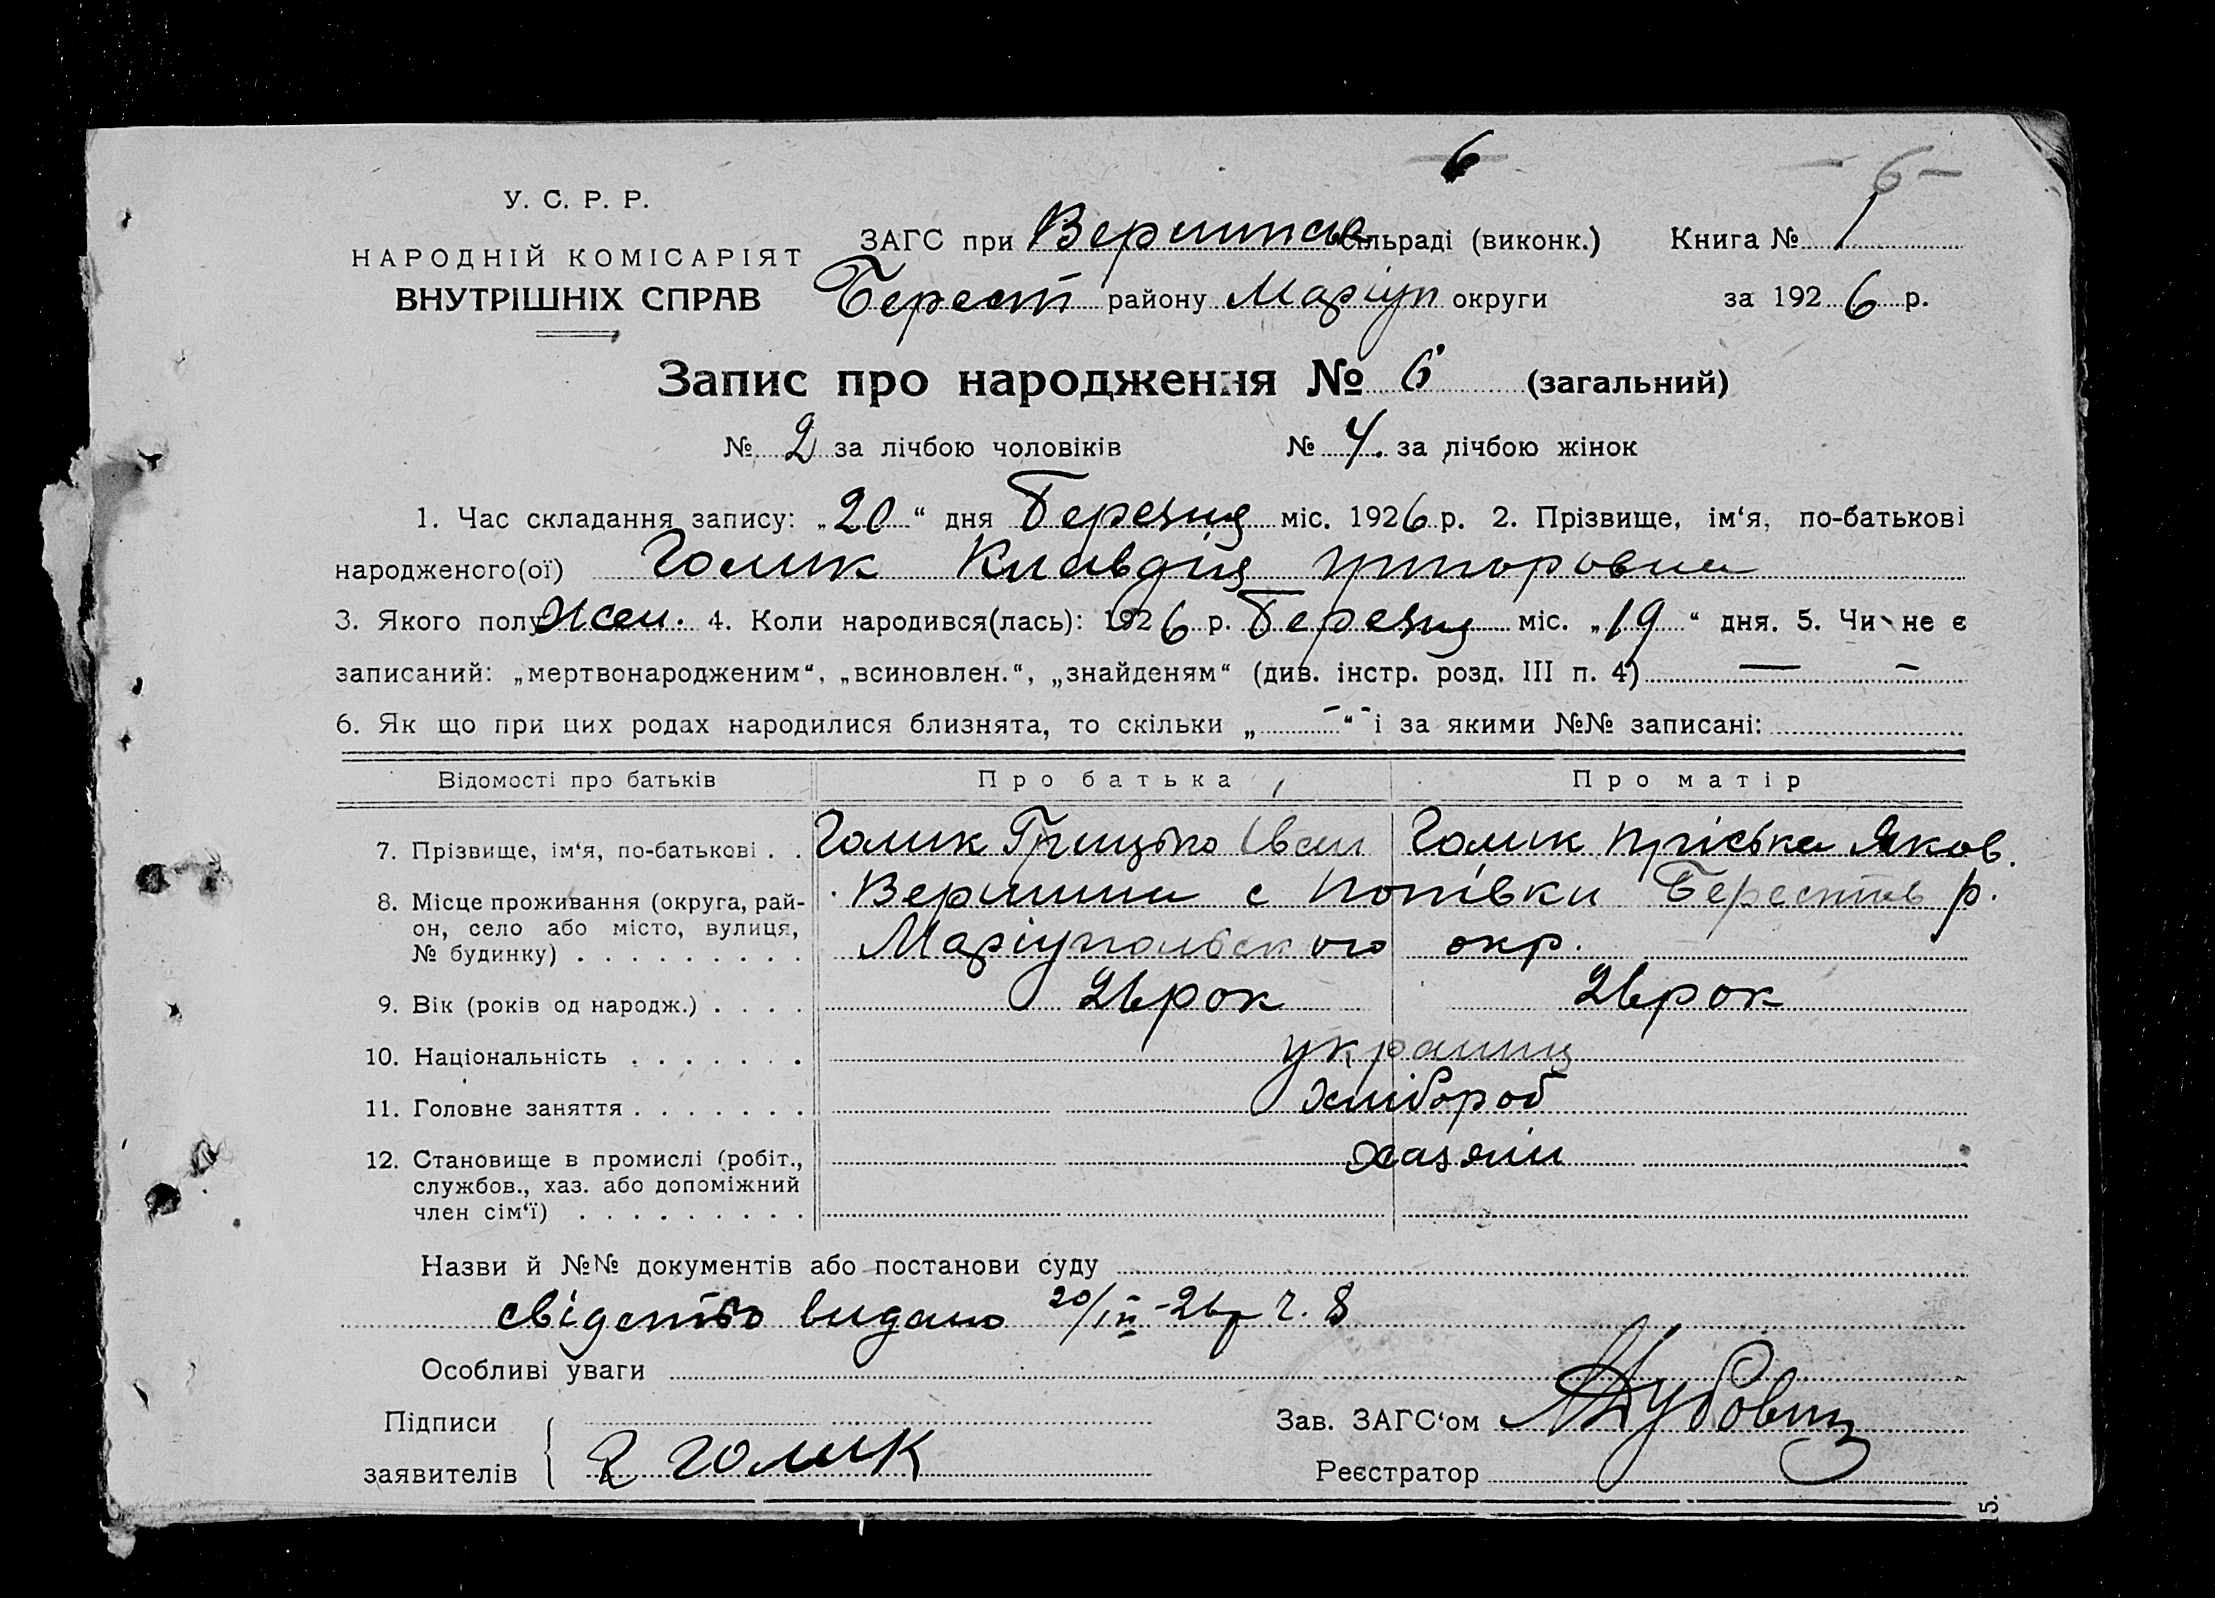 6
- 6 -
У. С. Р. Р.
НАРОДНІЙ КОМІСАРІЯТ
ВНУТРІШНІХ СПРАВ
ЗАГС при сільраді (виконк.) Книга № 1
Берест району Маріуп округи за 1926 р.
Запис про народження № 6 (загальний)
№ 2 за лічбою чоловіків № 4. за лічбою жінок
1. Час складання запису: „20“ дня Березня міс. 1926 р. 2. Прізвище, ім‘я, по-батькові
народженого(ої) Голик Клавдія Григоровна
3. Якого полу Жен. 4. Коли народився(лась): 1926 р. Березня міс. „19“ дня. 5. Чи не є
записаний: „мертвонародженим“, „всиновлен.“, „знайденям“ (див. інстр. розд. III п. 4) — –
6. Як що при цих родах народилися близнята, то скільки „ - “ і за якими №№ записані:
Відомості про батьків Про батька Про матір
7. Прізвище, ім‘я, по-батькові . . Голик Грицько Іван Голик Пріська Яков.
8. Місце проживання (округа, рай-
он, село або місто, вулиця,
№ будинку) . . . . . . . . .
с Попівки Берестов р.
Маріупольского окр.
9. Вік (років од народж.) . . . . 26 рок 26 рок
10. Національність . . . . . . . украинц
11. Головне заняття . . . . . . . хлібороб
12. Становище в промислі (робіт.,
службов., хаз. або допоміжний
член сім‘ї) . . . . . . . . .
хазяїн
Назви й №№ документів або постанови суду
свідетво видано 20/III-26р ч. 8
Особливі уваги
Підписи
заявителів
Г Голик
Зав. ЗАГС‘ом
Реєстратор
5.